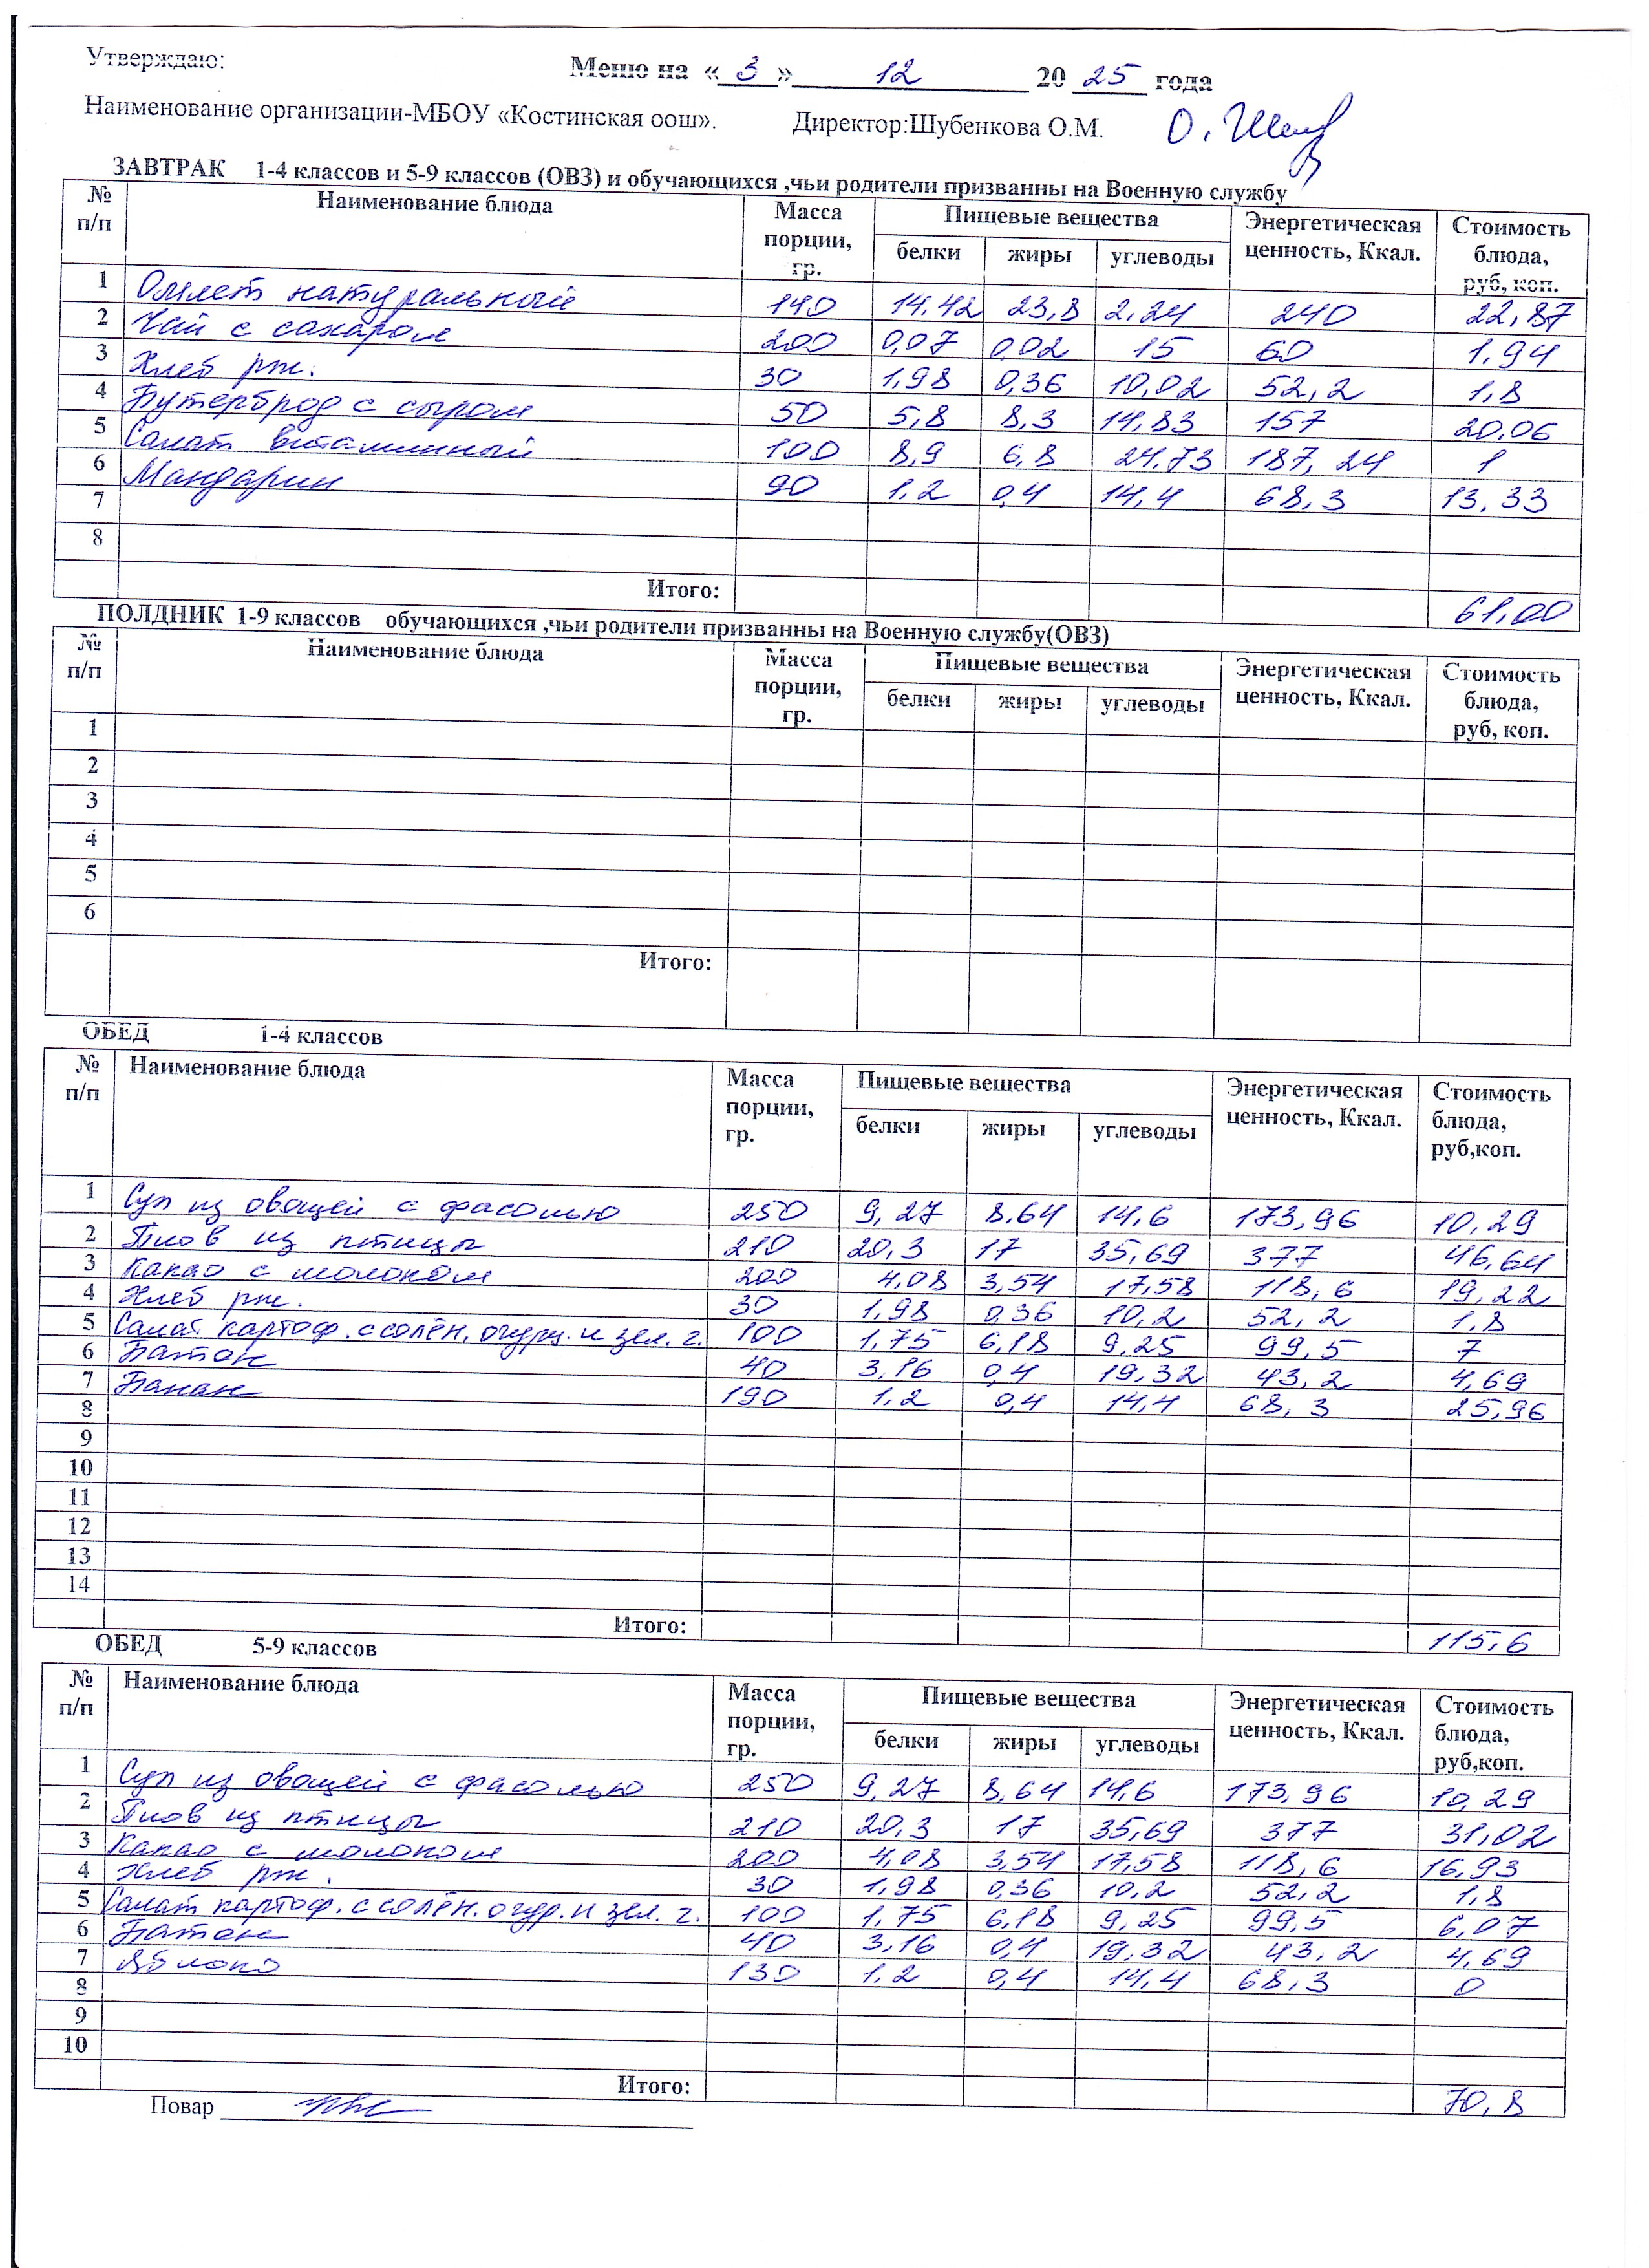 Утверждаю:
Меню на «3» 12 20 25 года
Наименование организации-МБОУ «Костинская оош». Директор:Шубенкова О.М.
ЗАВТРАК 1-4 классов и 5-9 классов (ОВЗ) и обучающихся ,чьи родители призванны на Военную службу
№ п/п Наименование блюда Масса порции, гр. Пищевые вещества Энергетическая ценность, Ккал. Стоимость блюда, руб, коп.
белки жиры углеводы
1 Омлет натуральный 140 14,42 23,8 2,24 240 22,87
2 Чай с сахаром 200 0,07 0,02 15 60 1,94
3 Хлеб рж. 30 1,98 0,36 10,02 52,2 1,8
4 Бутерброд с сыром 50 5,8 8,3 14,83 157 20,06
5 Салат витаминный 100 8,9 6,8 24,73 187,24 1
6 Мандарин 90 1,2 0,4 14,4 68,3 13,33
7
8
Итого: 61,00
ПОЛДНИК 1-9 классов обучающихся ,чьи родители призванны на Военную службу(ОВЗ)
№ п/п Наименование блюда Масса порции, гр. Пищевые вещества Энергетическая ценность, Ккал. Стоимость блюда, руб, коп.
белки жиры углеводы
1
2
3
4
5
6
Итого:
ОБЕД 1-4 классов
№ п/п Наименование блюда Масса порции, гр. Пищевые вещества Энергетическая ценность, Ккал. Стоимость блюда, руб,коп.
белки жиры углеводы
1 Суп из овощей с фасолью 250 9,27 8,64 14,6 173,96 10,29
2 Плов из птицы 210 20,3 17 35,69 377 46,64
3 Какао с молоком 200 4,08 3,54 17,58 118,6 19,22
4 Хлеб рж. 30 1,98 0,36 10,2 52,2 1,8
5 Салат картоф. с солён. огурц. и зел. г. 100 1,75 6,18 9,25 99,5 7
6 Батон 40 3,16 0,4 19,32 43,2 4,69
7 Банан 190 1,2 0,4 14,4 68,3 25,96
8
9
10
11
12
13
14
Итого: 115,6
ОБЕД 5-9 классов
№ п/п Наименование блюда Масса порции, гр. Пищевые вещества Энергетическая ценность, Ккал. Стоимость блюда, руб,коп.
белки жиры углеводы
1 Суп из овощей с фасолью 250 9,27 8,64 14,6 173,96 10,29
2 Плов из птицы 210 20,3 17 35,69 377 31,02
3 Какао с молоком 200 4,08 3,54 17,58 118,6 16,93
4 Хлеб рж. 30 1,98 0,36 10,2 52,2 1,8
5 Салат картоф. с солён. огур. и зел. г. 100 1,75 6,18 9,25 99,5 6,07
6 Батон 40 3,16 0,4 19,32 43,2 4,69
7 Яблоко 130 1,2 0,4 14,4 68,3 0
8
9
10
Итого: 70,8
Повар